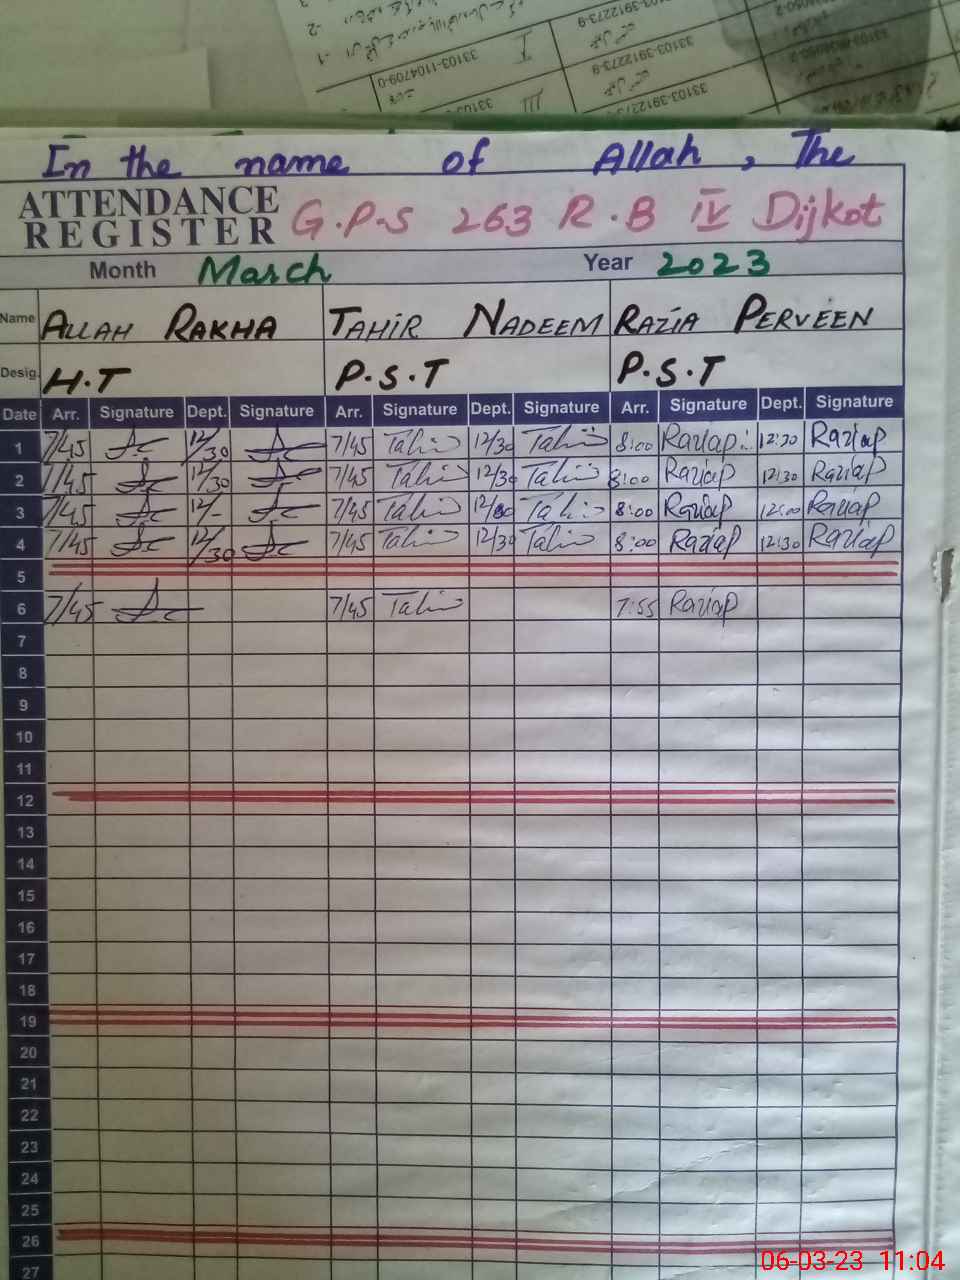 33103-1104709-0
33103-3912273-9
33103-3912273-9
II
III
In the name of Allah, The
ATTENDANCE REGISTER G.P.S 263 R.B IV Dijkot
Month March Year 2023
Name ALLAH RAKHA TAHIR NADEEM RAZIA PERVEEN
Desig. H.T P.S.T P.S.T
Date Arr. Signature Dept. Signature Arr. Signature Dept. Signature Arr. Signature Dept. Signature
1 7/45 12/30 7/45 Tahir 12/30 Tahir 8:00 Raziap 12:30 Raziap
2 7/45 12/30 7/45 Tahir 12/30 Tahir 8:00 Raziap 12:30 Raziap
3 7/45 12/- 7/45 Tahir 12/00 Tahir 8:00 Raziap 12:00 Raziap
4 7/45 12/30 7/45 Tahir 12/30 Tahir 8:00 Raziap 12:30 Raziap
5
6 7/45 7/45 Tahir 7:55 Raziap
7
8
9
10
11
12
13
14
15
16
17
18
19
20
21
22
23
24
25
26
27
06-03-23 11:04